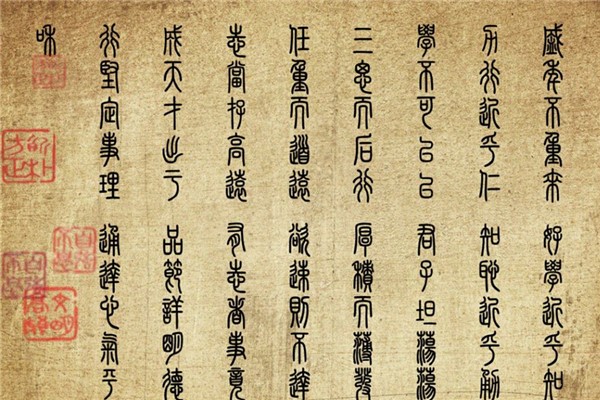 盛年不重來 好學近乎知
力行近乎仁 知恥近乎勇
學不可以已 君子坦蕩蕩
三思而后行 厚積而薄發
任重而道遠 欲速則不達
志當存高遠 有志者事竟
成天才出于 品節詳明德
行堅定事理 通達心氣平
和